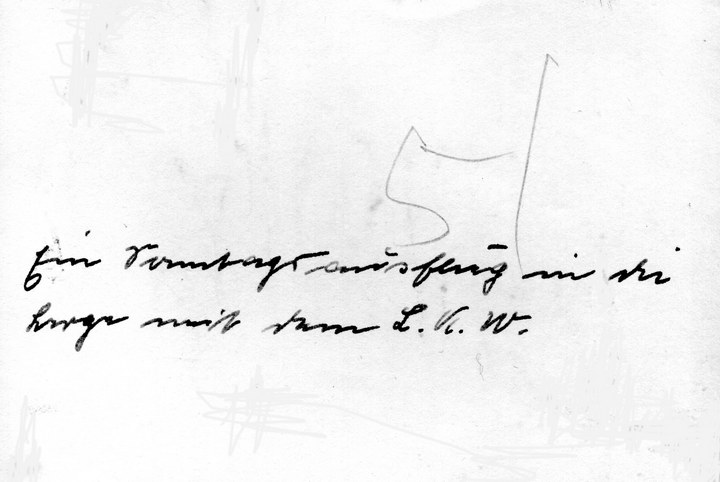 51
Ein Sonntagsausflug in die
berge mit dem L. K. W.